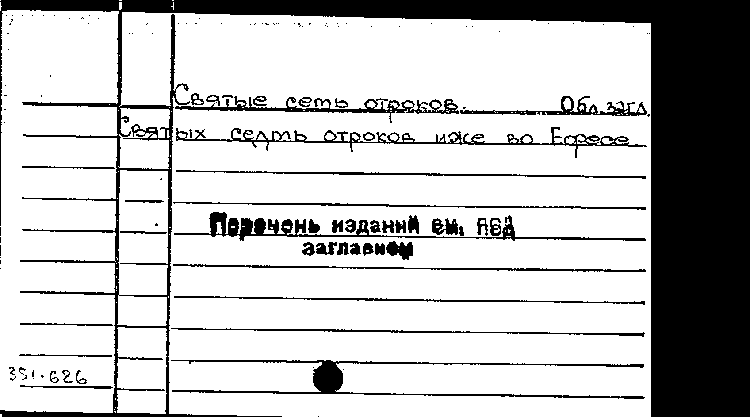 Святые семь отроков. Обл. загл.
Святых седмь отроков иже во Ефесе
Перечень изданий см. под
заглавием
351.626